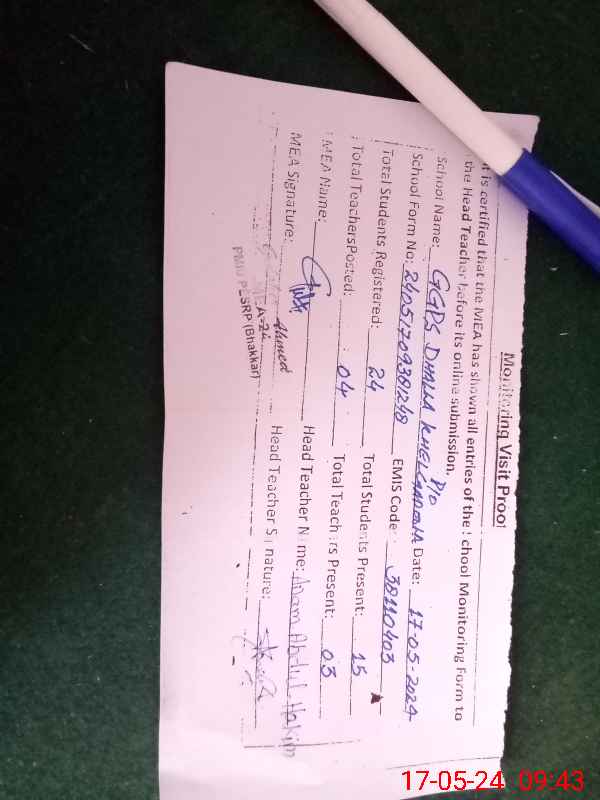 Monitoring Visit Proof
It is certified that the MEA has shown all entries of the School Monitoring Form to
the Head Teacher before its online submission.
School Name: GGPS DHALLA KHELGADOHA P/O Date: 17-05-2024
School Form No: 24051709381248 EMIS Code: 38110403
Total Students Registered: 24 Total Students Present: 15
Total Teachers Posted: 04 Total Teachers Present: 03
MEA Name: Head Teacher Name: Anam Abdul Hakim
MEA Signature: Head Teacher Signature:
Ahmed
MEA-24
PMIU PESRP (Bhakkar)
17-05-24 09:43